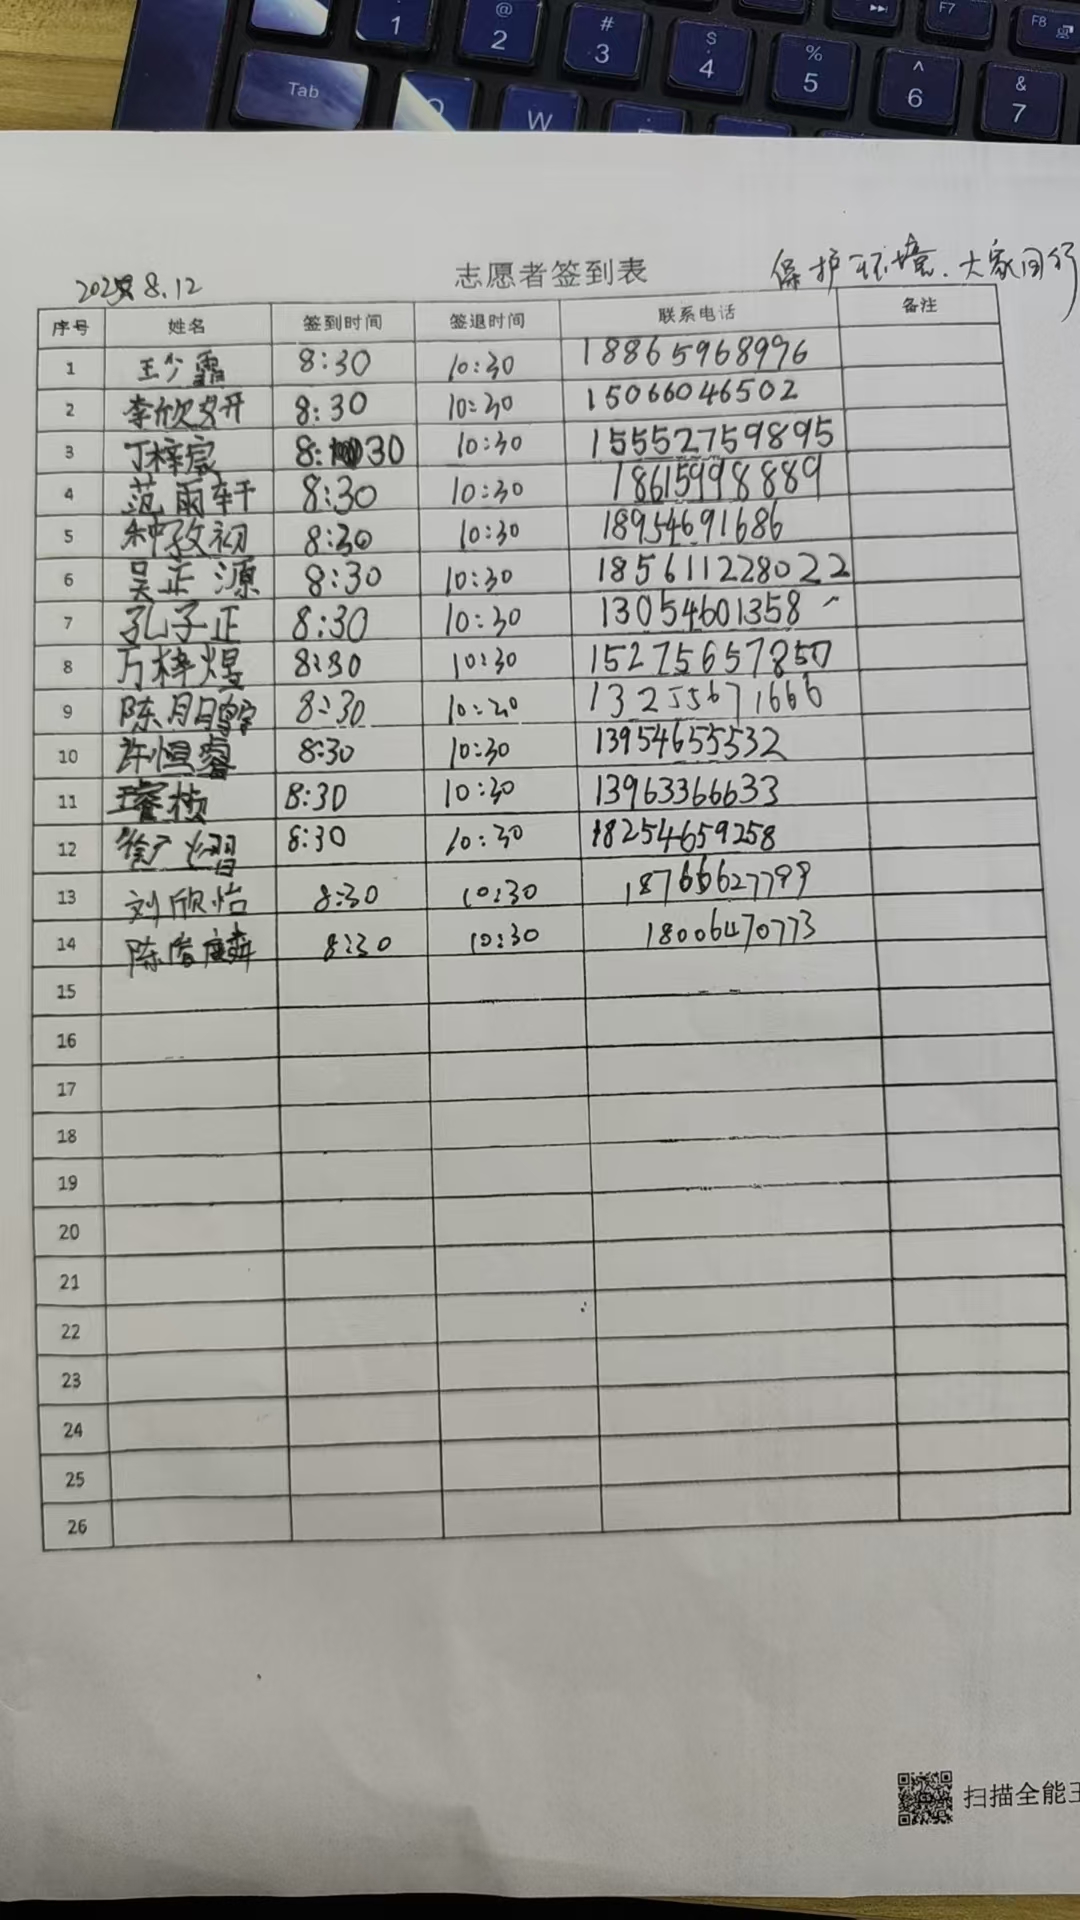 1
@ 2
# 3
$ 4
% 5
^ 6
& 7
F7
F8
Tab
Q
W
志愿者签到表
保护环境.大家同行
8.12
序号 姓名 签到时间 签退时间 联系电话 备注
1 王少霜 8:30 10:30 18865968996
2 李欣妍 8:30 10:30 15066046502
3 丁梓宸 8:30 10:30 15552759895
4 范雨轩 8:30 10:30 18615998889
5 种孜初 8:30 10:30 18954691686
6 吴正源 8:30 10:30 185611228022
7 孔子正 8:30 10:30 13054601358
8 万梓煜 8:30 10:30 15275657850
9 陈 8:30 10:30 13255671666
10 许恒睿 8:30 10:30 13954655532
11 8:30 10:30 13963366633
12 徐 熠 8:30 10:30 18254659258
13 刘欣怡 8:30 10:30 18766627799
14 陈 麟 8:30 10:30 18006470773
15
16
17
18
19
20
21
22
23
24
25
26
扫描全能王